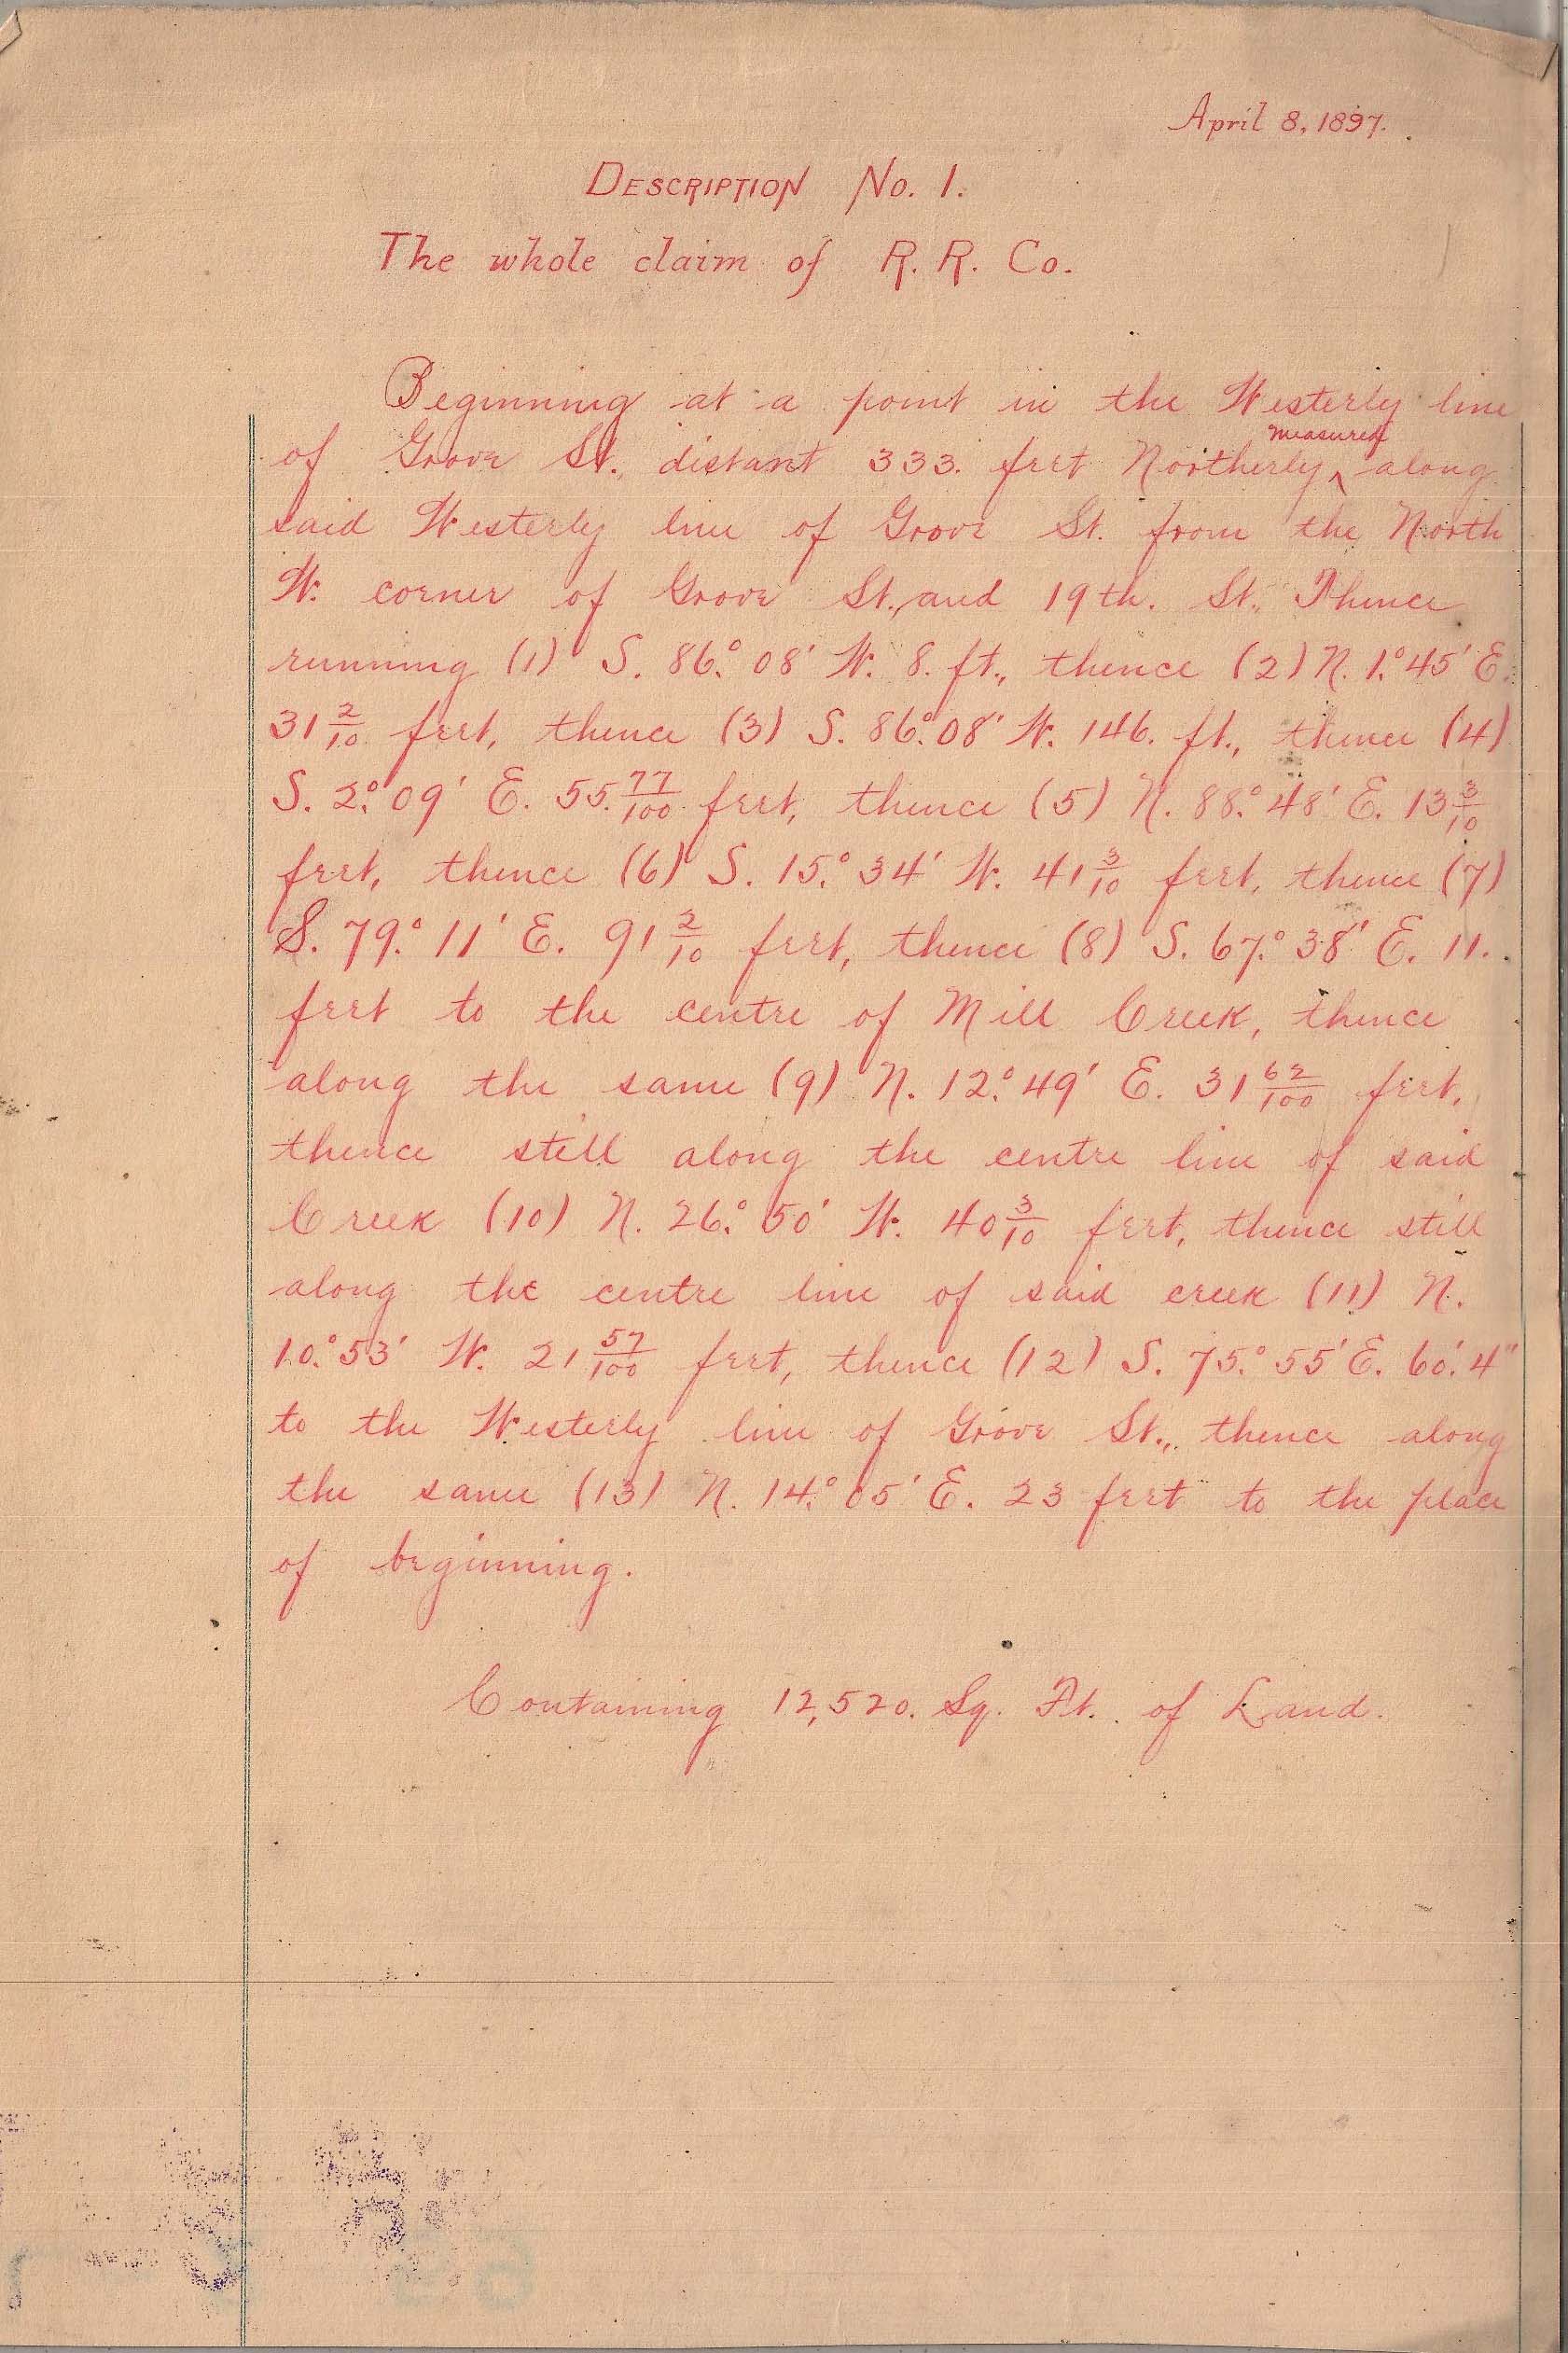 April 8, 1897.
DESCRIPTION No. 1.
The whole claim of R. R. Co.
Beginning at a point in the Westerly line
of Grove St., distant 333. feet Northerly ^measured along
said Westerly line of Grove St. from the North
W. corner of Grove St. and 19th. St. Thence
running (1) S. 86.° 08' W. 8. ft., thence (2) N. 1.° 45' E.
31 2/10 feet, thence (3) S. 86.° 08' W. 146. ft., thence (4)
S. 2.° 09' E. 55. 77/100 feet, thence (5) N. 88.° 48' E. 13 3/10
feet, thence (6) S. 15.° 34' W. 41 3/10 feet, thence (7)
S. 79.° 11' E. 91 2/10 feet, thence (8) S. 67.° 38' E. 11.
feet to the centre of Mill Creek, thence
along the same (9) N. 12.° 49' E. 31 62/100 feet,
thence still along the centre line of said
Creek (10) N. 26.° 50' W. 40 3/10 feet, thence still
along the centre line of said creek (11) N.
10.° 53' W. 21 57/100 feet, thence (12) S. 75.° 55' E. 60'. 4"
to the Westerly line of Grove St., thence along
the same (13) N. 14.° 05' E. 23 feet to the place
of beginning.
Containing 12,520. Sq. Ft. of Land.